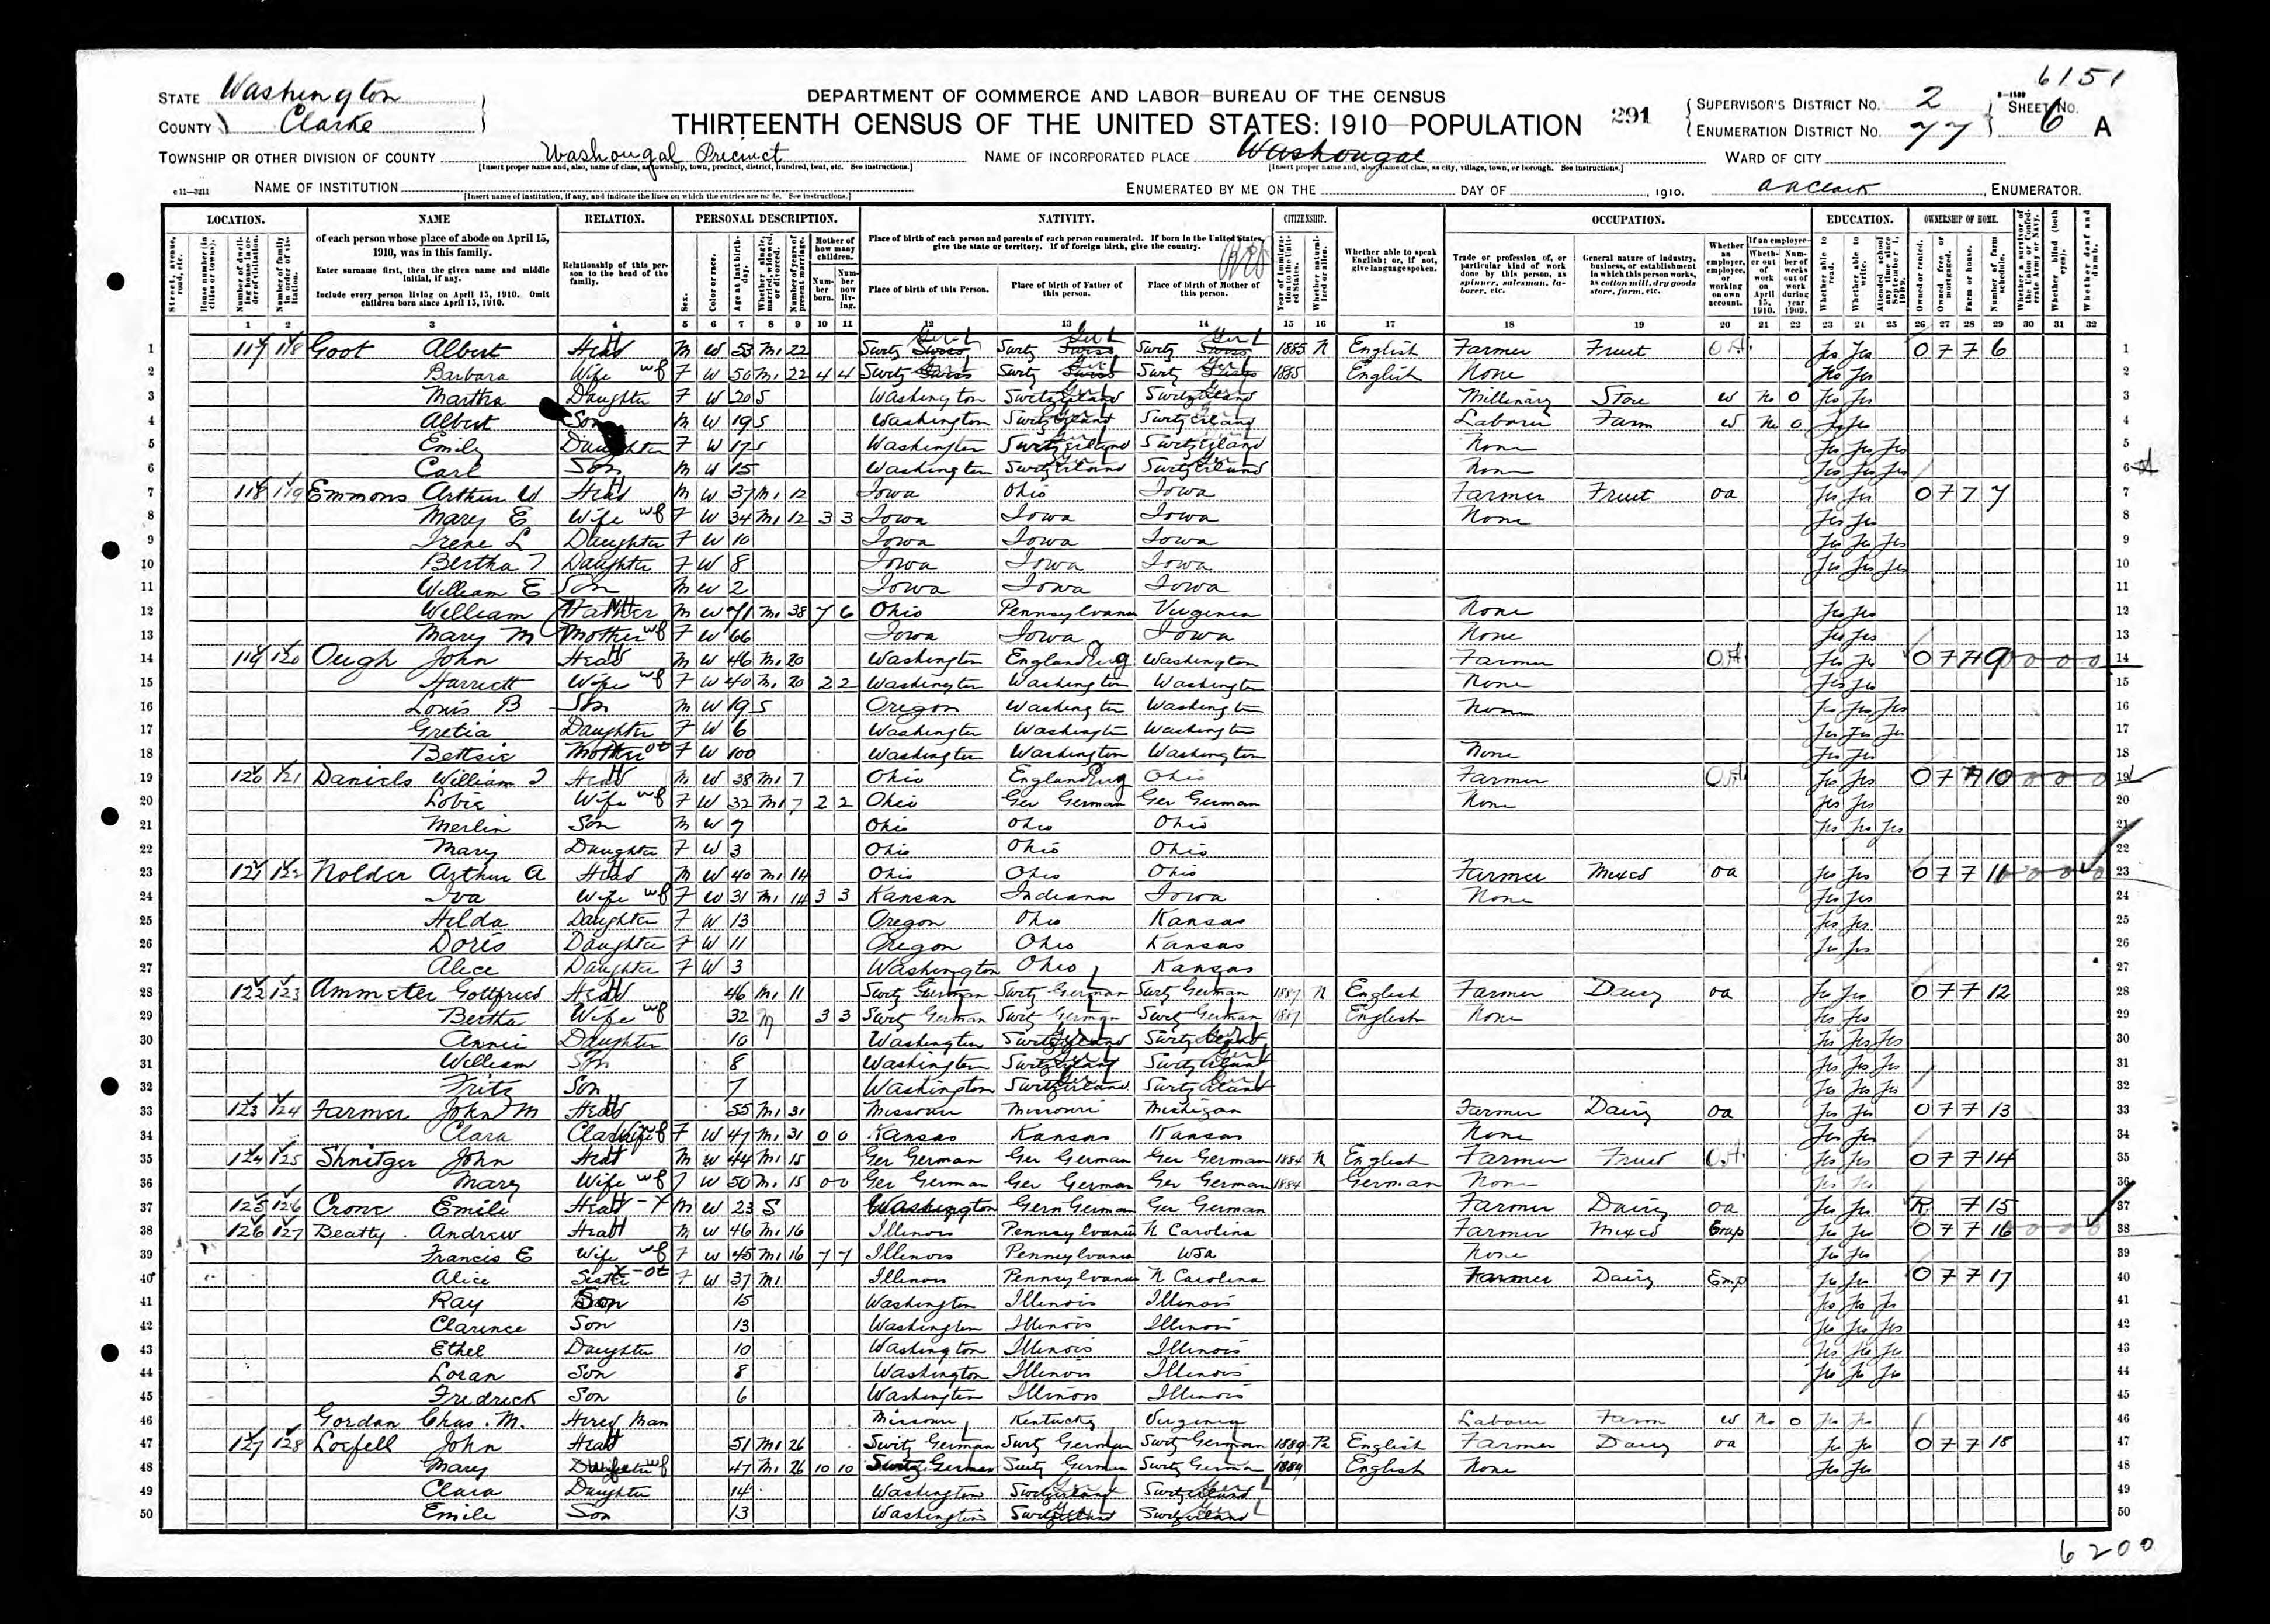 6151
STATE Washington
COUNTY Clarke
DEPARTMENT OF COMMERCE AND LABOR—BUREAU OF THE CENSUS
THIRTEENTH CENSUS OF THE UNITED STATES: 1910—POPULATION
291
SUPERVISOR'S DISTRICT No. 2
ENUMERATION DISTRICT No. 77
SHEET No. 6 A
TOWNSHIP OR OTHER DIVISION OF COUNTY Washougal Precinct
NAME OF INCORPORATED PLACE Washougal
WARD OF CITY
NAME OF INSTITUTION
ENUMERATED BY ME ON THE DAY OF , 1910. , ENUMERATOR.
LOCATION. NAME RELATION. PERSONAL DESCRIPTION. NATIVITY. CITIZENSHIP. OCCUPATION. EDUCATION. OWNERSHIP OF HOME.
of each person whose place of abode on April 15, 1910, was in this family.
Enter surname first, then the given name and middle initial, if any.
Include every person living on April 15, 1910. Omit children born since April 15, 1910.
Relationship of this person to the head of the family.
Place of birth of each person and parents of each person enumerated. If born in the United States, give the state or territory. If of foreign birth, give the country.
Place of birth of this Person. Place of birth of Father of this person. Place of birth of Mother of this person.
Whether able to speak English; or, if not, give language spoken.
1 2 3 4 5 6 7 8 9 10 11 12 13 14 15 16 17 18 19 20 21 22 23 24 25 26 27 28 29 30 31 32
1 117 118 Goot Albert Head M W 53 M1 22 1885 N English Farmer Fruit OA Yes Yes O 7 7 6
2 Barbara Wife F W 50 M1 22 4 4 1885 English None
3 Martha Daughter F W 20 S Washington Switzerland Switzerland Millinary Store W No O Yes Yes
4 Albert Son M W 19 S Washington Switzerland Switzerland Laborer Farm W No O
5 Emily Daughter F W 17 S Washington Switzerland Switzerland None Yes Yes Yes
6 Carl Son M W 15 Washington Switzerland Switzerland None Yes Yes Yes
7 118 119 Emmons Arthur W Head M W 37 M1 12 Iowa Ohio Iowa Farmer Fruit oa Yes Yes O 7 7 7
8 Mary E Wife F W 34 M1 12 3 3 Iowa Iowa Iowa None Yes Yes
9 Irene L Daughter F W 10 Iowa Iowa Iowa Yes Yes Yes
10 Bertha Daughter F W 8 Iowa Iowa Iowa Yes Yes Yes
11 William E Son M W 2 Iowa Iowa Iowa
12 William Father M W 71 M1 38 7 6 Ohio Pennsylvania Virginia None Yes Yes
13 Mary M Mother F W 66 Iowa Iowa Iowa None Yes Yes
14 119 120 Ough John Head M W 46 M1 20 Washington England Eng Washington Farmer OA Yes Yes O 7 7 9
15 Harriett Wife F W 40 M1 20 2 2 Washington Washington Washington None Yes Yes
16 Louis B Son M W 19 S Oregon Washington Washington None Yes Yes Yes
17 Gretia Daughter F W 6 Washington Washington Washington Yes Yes Yes
18 Bettsie Mother F W 100 Washington Washington Washington None Yes Yes
19 120 121 Daniels William Head M W 38 M1 7 Ohio England Eng Ohio Farmer OA Yes Yes O 7 10
20 Lobie Wife F W 32 M1 7 2 2 Ohio Ger German Ger German None Yes Yes
21 Merlin Son M W 7 Ohio Ohio Ohio Yes Yes Yes
22 Mary Daughter F W 3 Ohio Ohio Ohio
23 121 122 Nolder Arthur A Head M W 40 M1 14 Ohio Ohio Ohio Farmer Mixed oa Yes Yes O 7 7 11
24 Iva Wife F W 31 M1 14 3 3 Kansas Indiana Iowa None Yes Yes
25 Hilda Daughter F W 13 Oregon Ohio Kansas Yes Yes
26 Doris Daughter F W 11 Oregon Ohio Kansas Yes Yes
27 Alice Daughter F W 3 Washington Ohio Kansas
28 122 123 Ammeter Gottfried Head 46 M1 11 Switz German Switz German Switz German 1887 N English Farmer Dairy oa Yes Yes O 7 7 12
29 Bertha Wife 32 M 3 3 Switz German Switz German Switz German 1887 English None Yes Yes
30 Annie Daughter 10 Washington Switzerland Switzerland Yes Yes Yes
31 William Son 8 Washington Switzerland Switzerland Yes Yes Yes
32 Fritz Son 7 Washington Switzerland Switzerland Yes Yes Yes
33 123 124 Farmer John M Head 55 M1 31 Missouri Missouri Michigan Farmer Dairy oa Yes Yes O 7 7 13
34 Clara Wife F W 47 M1 31 0 0 Kansas Kansas Kansas None Yes Yes
35 124 125 Shnitger John Head M W 44 M1 15 Ger German Ger German Ger German 1884 N English Farmer Fruit OA Yes Yes O 7 7 14
36 Mary Wife F W 50 M1 15 0 0 Ger German Ger German Ger German 1884 German None
37 125 126 Crone Emile Head M W 23 S Washington Gern German Ger German Farmer Dairy oa Yes Yes R 7 15
38 126 127 Beatty Andrew Head M W 46 M1 16 Illinois Pennsylvania N Carolina Farmer Mixed Emp Yes Yes O 7 7 16
39 Francis E Wife F W 45 M1 16 7 7 Illinois Pennsylvania USA None Yes Yes
40 Alice Sister F W 37 M1 Illinois Pennsylvania N Carolina Farmer Dairy Emp Yes Yes O 7 7 17
41 Ray Son 15 Washington Illinois Illinois Yes Yes Yes
42 Clarence Son 13 Washington Illinois Illinois Yes Yes Yes
43 Ethel Daughter 10 Washington Illinois Illinois Yes Yes Yes
44 Loran Son 8 Washington Illinois Illinois Yes Yes Yes
45 Fredrick Son 6 Washington Illinois Illinois
46 Gordan Chas. M. Hired Man Missouri Kentucky Virginia Laborer Farm W No O Yes Yes
47 127 128 Loefell John Head 51 M1 26 Switz German Switz German Switz German 1889 Pa English Farmer Dairy oa Yes Yes O 7 7 18
48 Mary Wife 47 M1 26 10 10 Switz German Switz German Switz German 1889 English None Yes Yes
49 Clara Daughter 14 Washington Switzerland Switzerland
50 Emile Son 13 Washington Switzerland Switzerland
6200